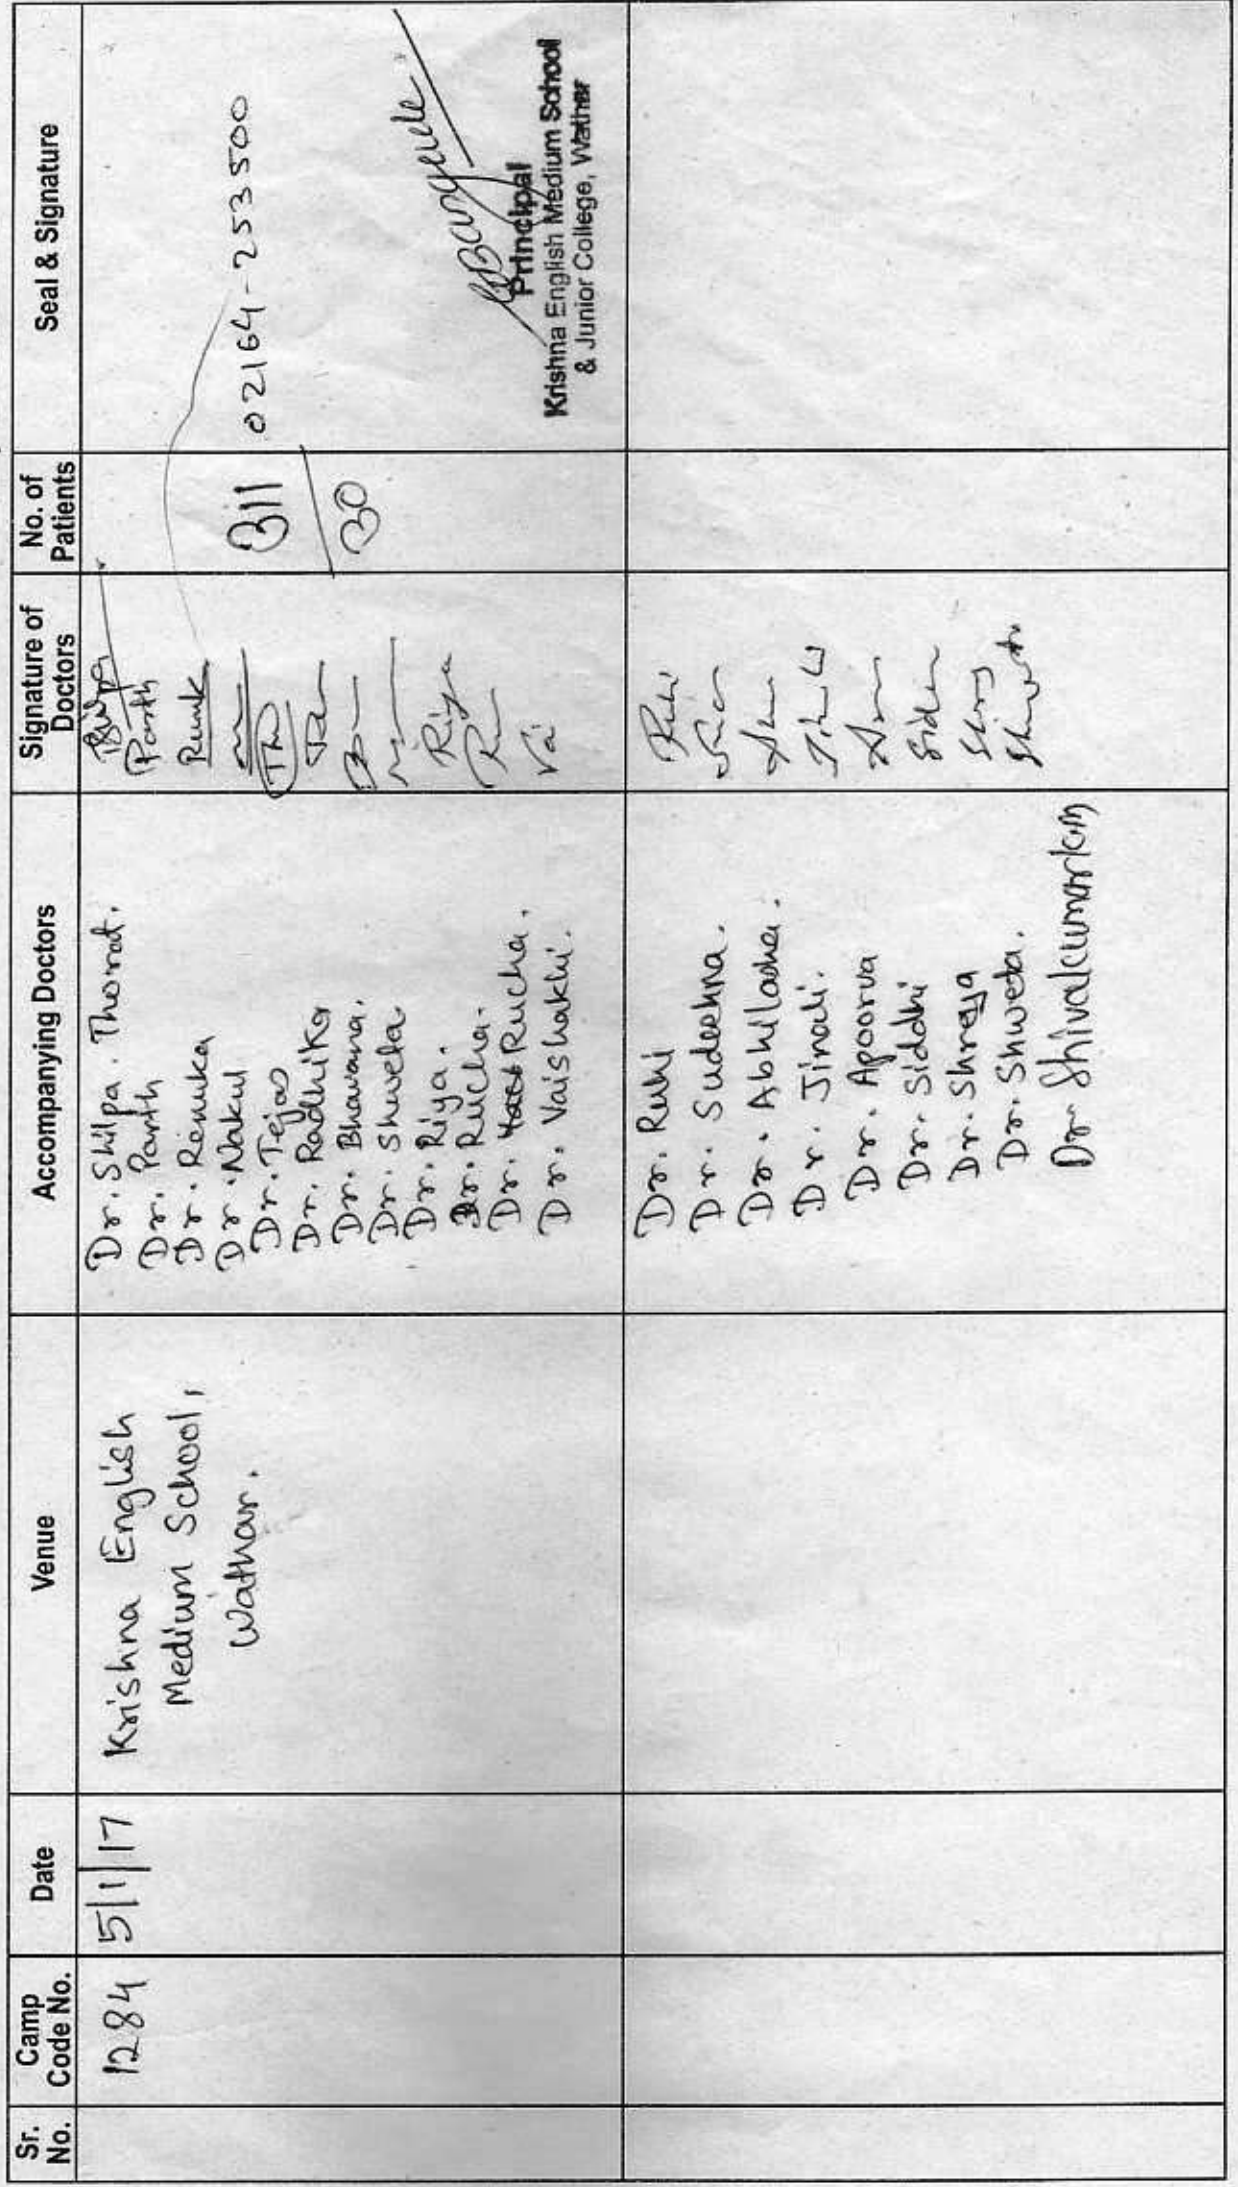 Sr. No.
Camp Code No.
Date
Venue
Accompanying Doctors
Signature of Doctors
No. of Patients
Seal & Signature
1284
5/1/17
Krishna English
Medium School,
Wathar.
Dr. Shilpa. Thorat.
Dr. Parth
Dr. Renuka
Dr. Nakul
Dr. Tejas
Dr. Radhika
Dr. Bhavana.
Dr. Shweta
Dr. Riya.
Dr. Rucha.
Dr. Rucha.
Dr. Vaishakhi.
Parth
Riya
Vai
311
30
02164-253500
Principal
Krishna English Medium School
& Junior College, Wathar
Dr. Ruhi
Dr. Sudeshna.
Dr. Abhilasha.
Dr. Jinali.
Dr. Apoorva
Dr. Siddhi
Dr. Shreya
Dr. Shweta.
Dr Shivakumar